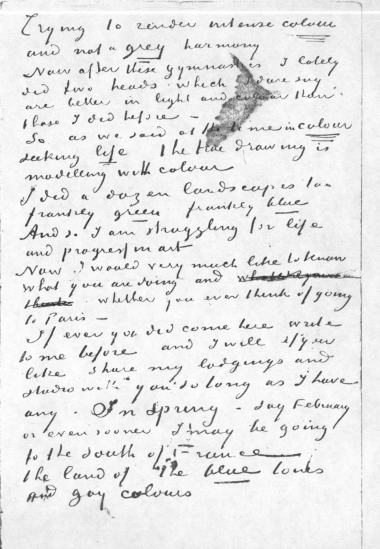 Trying to render intense colour
and not a grey harmony
Now after these gymnastics I lately
did two heads which I dare say
are better in light and colour than
those I did before –
So as we said at the time in colour
seeking life the true drawing is
modelling with colour
I did a dozen landscapes too
frankly green frankly blue
And so I am struggling for life
and progress in art
Now I would very much like to know
what you are doing and
whether you ever think of going
to Paris –
If ever you did come here write
to me before and I will if you
like share my lodgings and
studio with you so long as I have
any. In spring – say February
or even sooner I may be going
to the south of France
the land of the blue tones
and gay colours